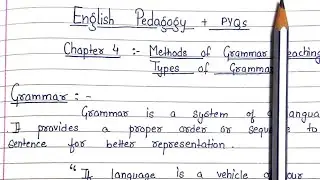 English Pedagogy + PYQs
Chapter 4 :- Methods of Grammar
Types of Grammar
Grammar : -
Grammar is a system of
It provides a proper order or to
sentence for better representation.
"If language is a vehicle of